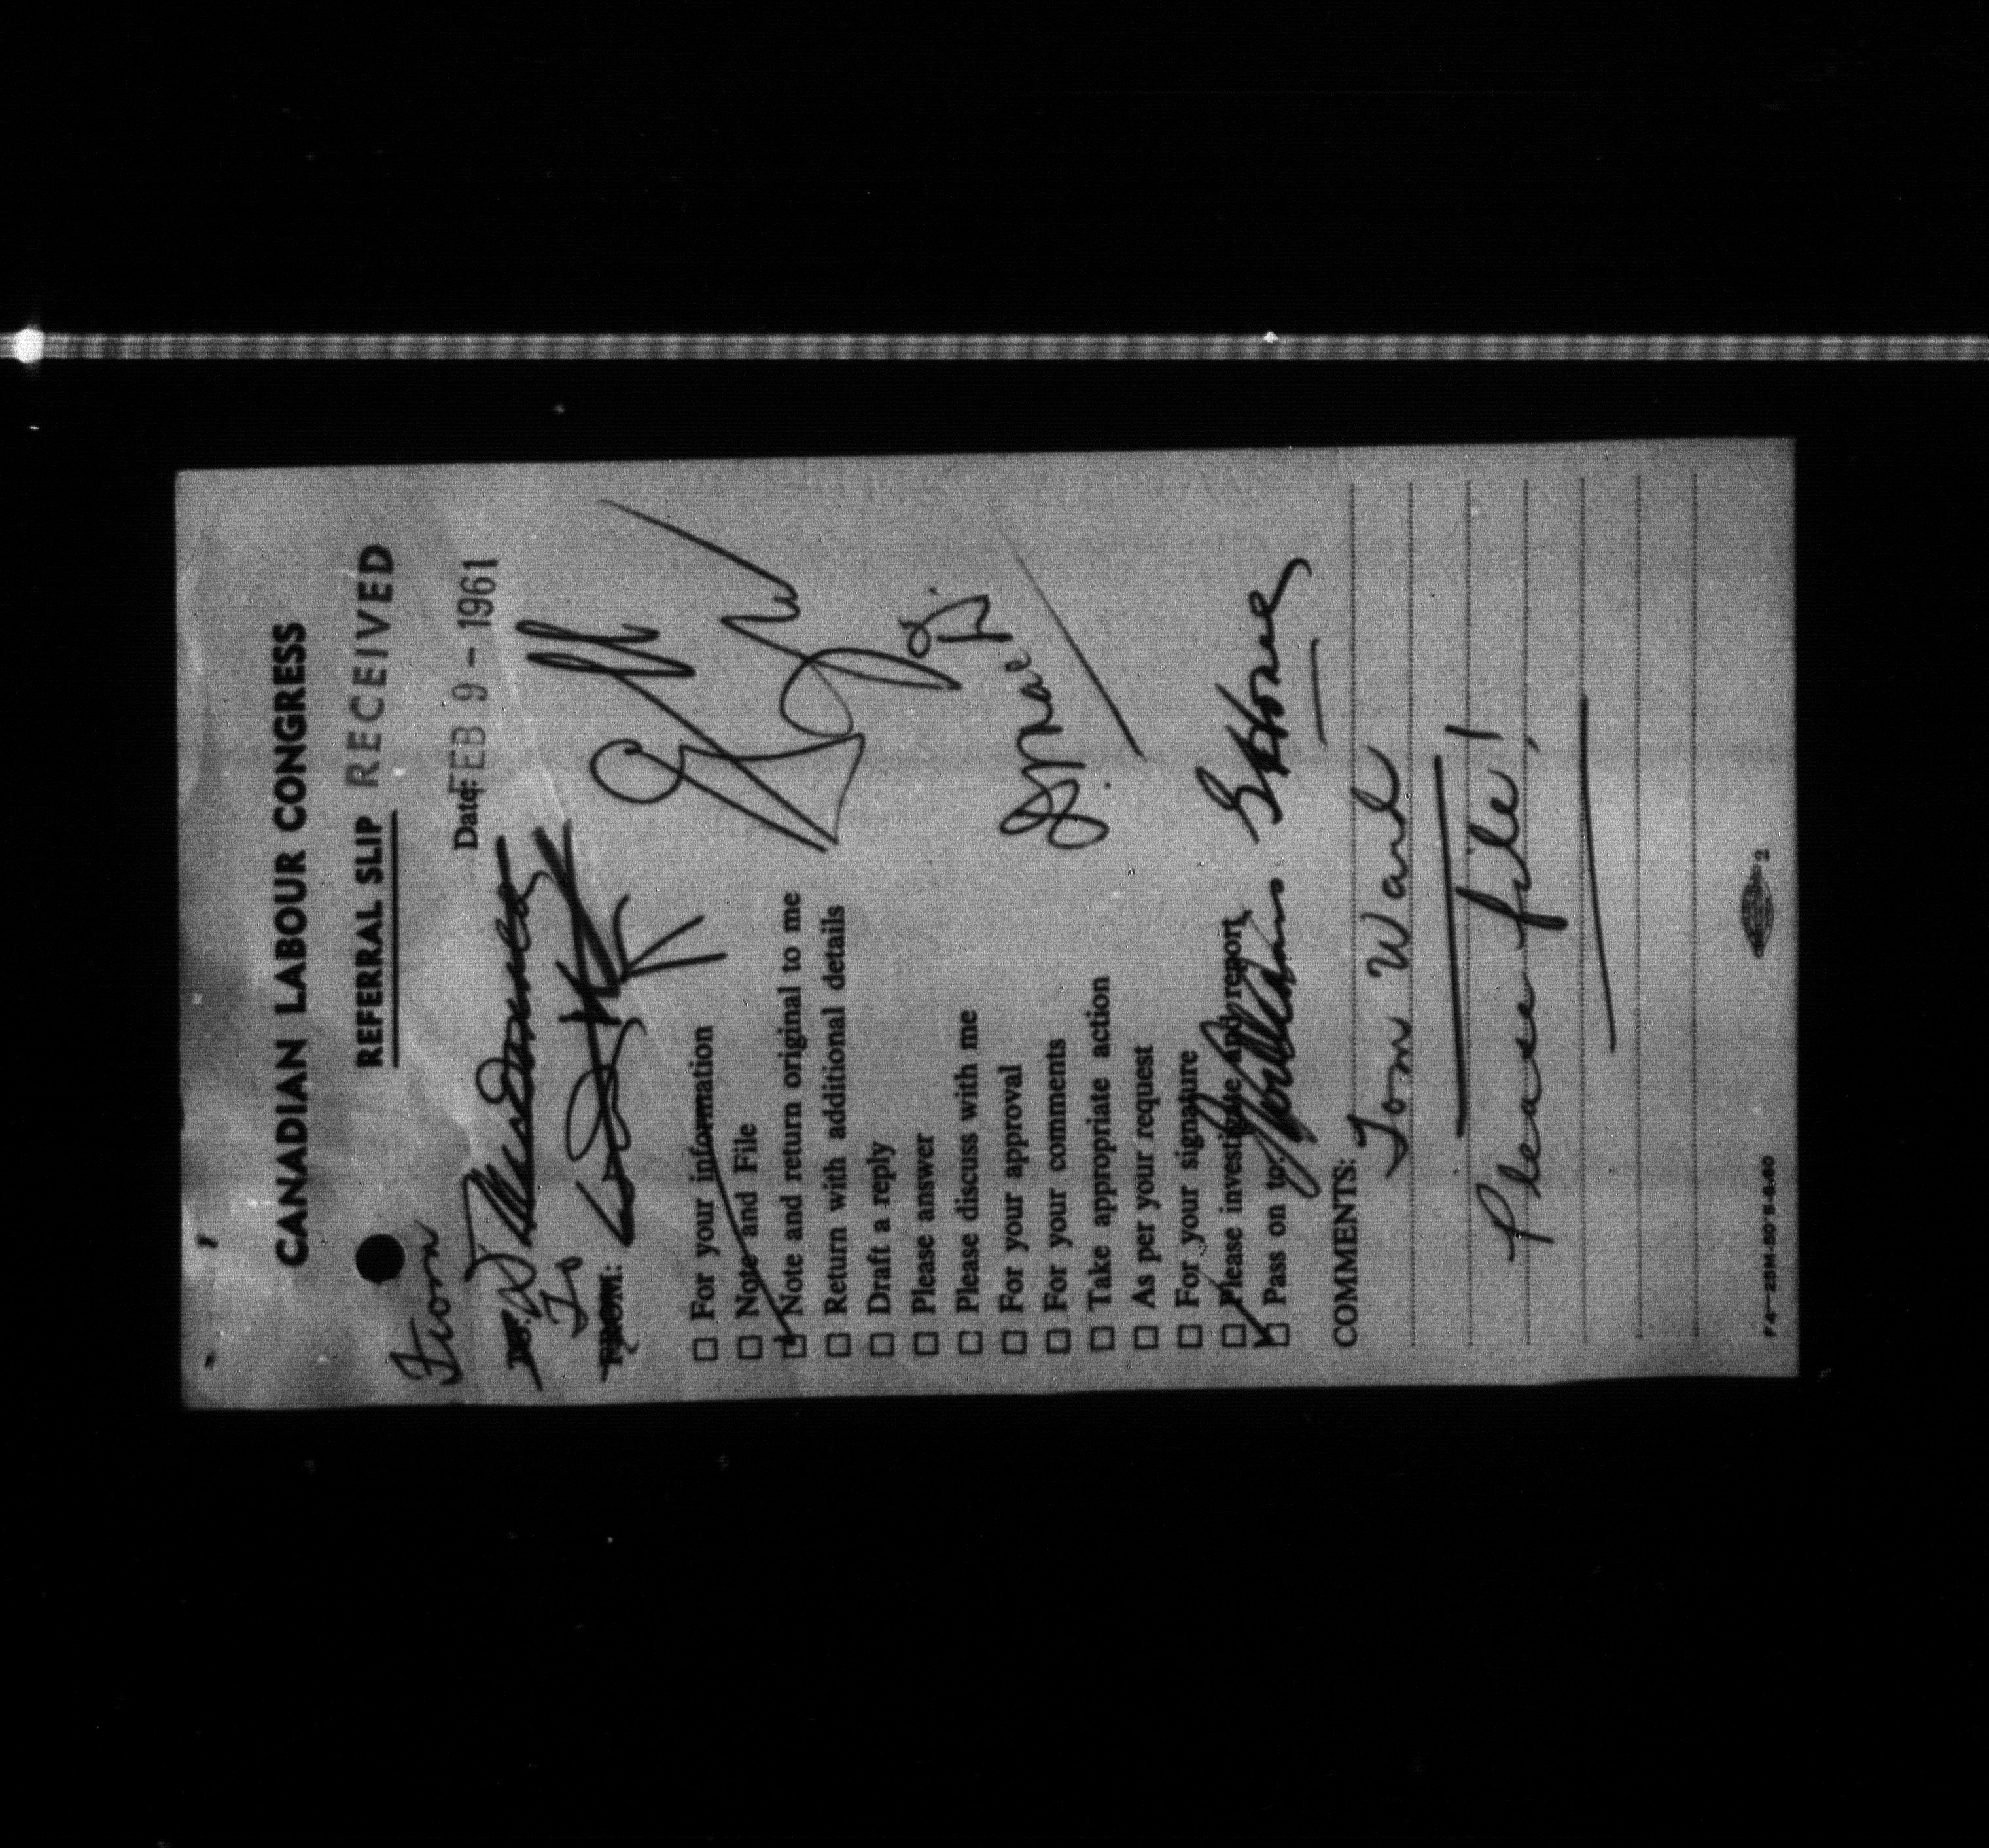 CANADIAN LABOUR CONGRESS
REFERRAL SLIP RECEIVED
From
Date: FEB 9 - 1961
TO:
To
FROM:
☐ For your information
☐ Note and File
☐ Note and return original to me
☐ Return with additional details
☐ Draft a reply
☐ Please answer
☐ Please discuss with me
☐ For your approval
☐ For your comments
☐ Take appropriate action
☐ As per your request
☐ For your signature
☐ Please investigate and report
☐ Pass on to:
COMMENTS:
Tom Ward
Please file!
F4—25M-50'S-6.60
2